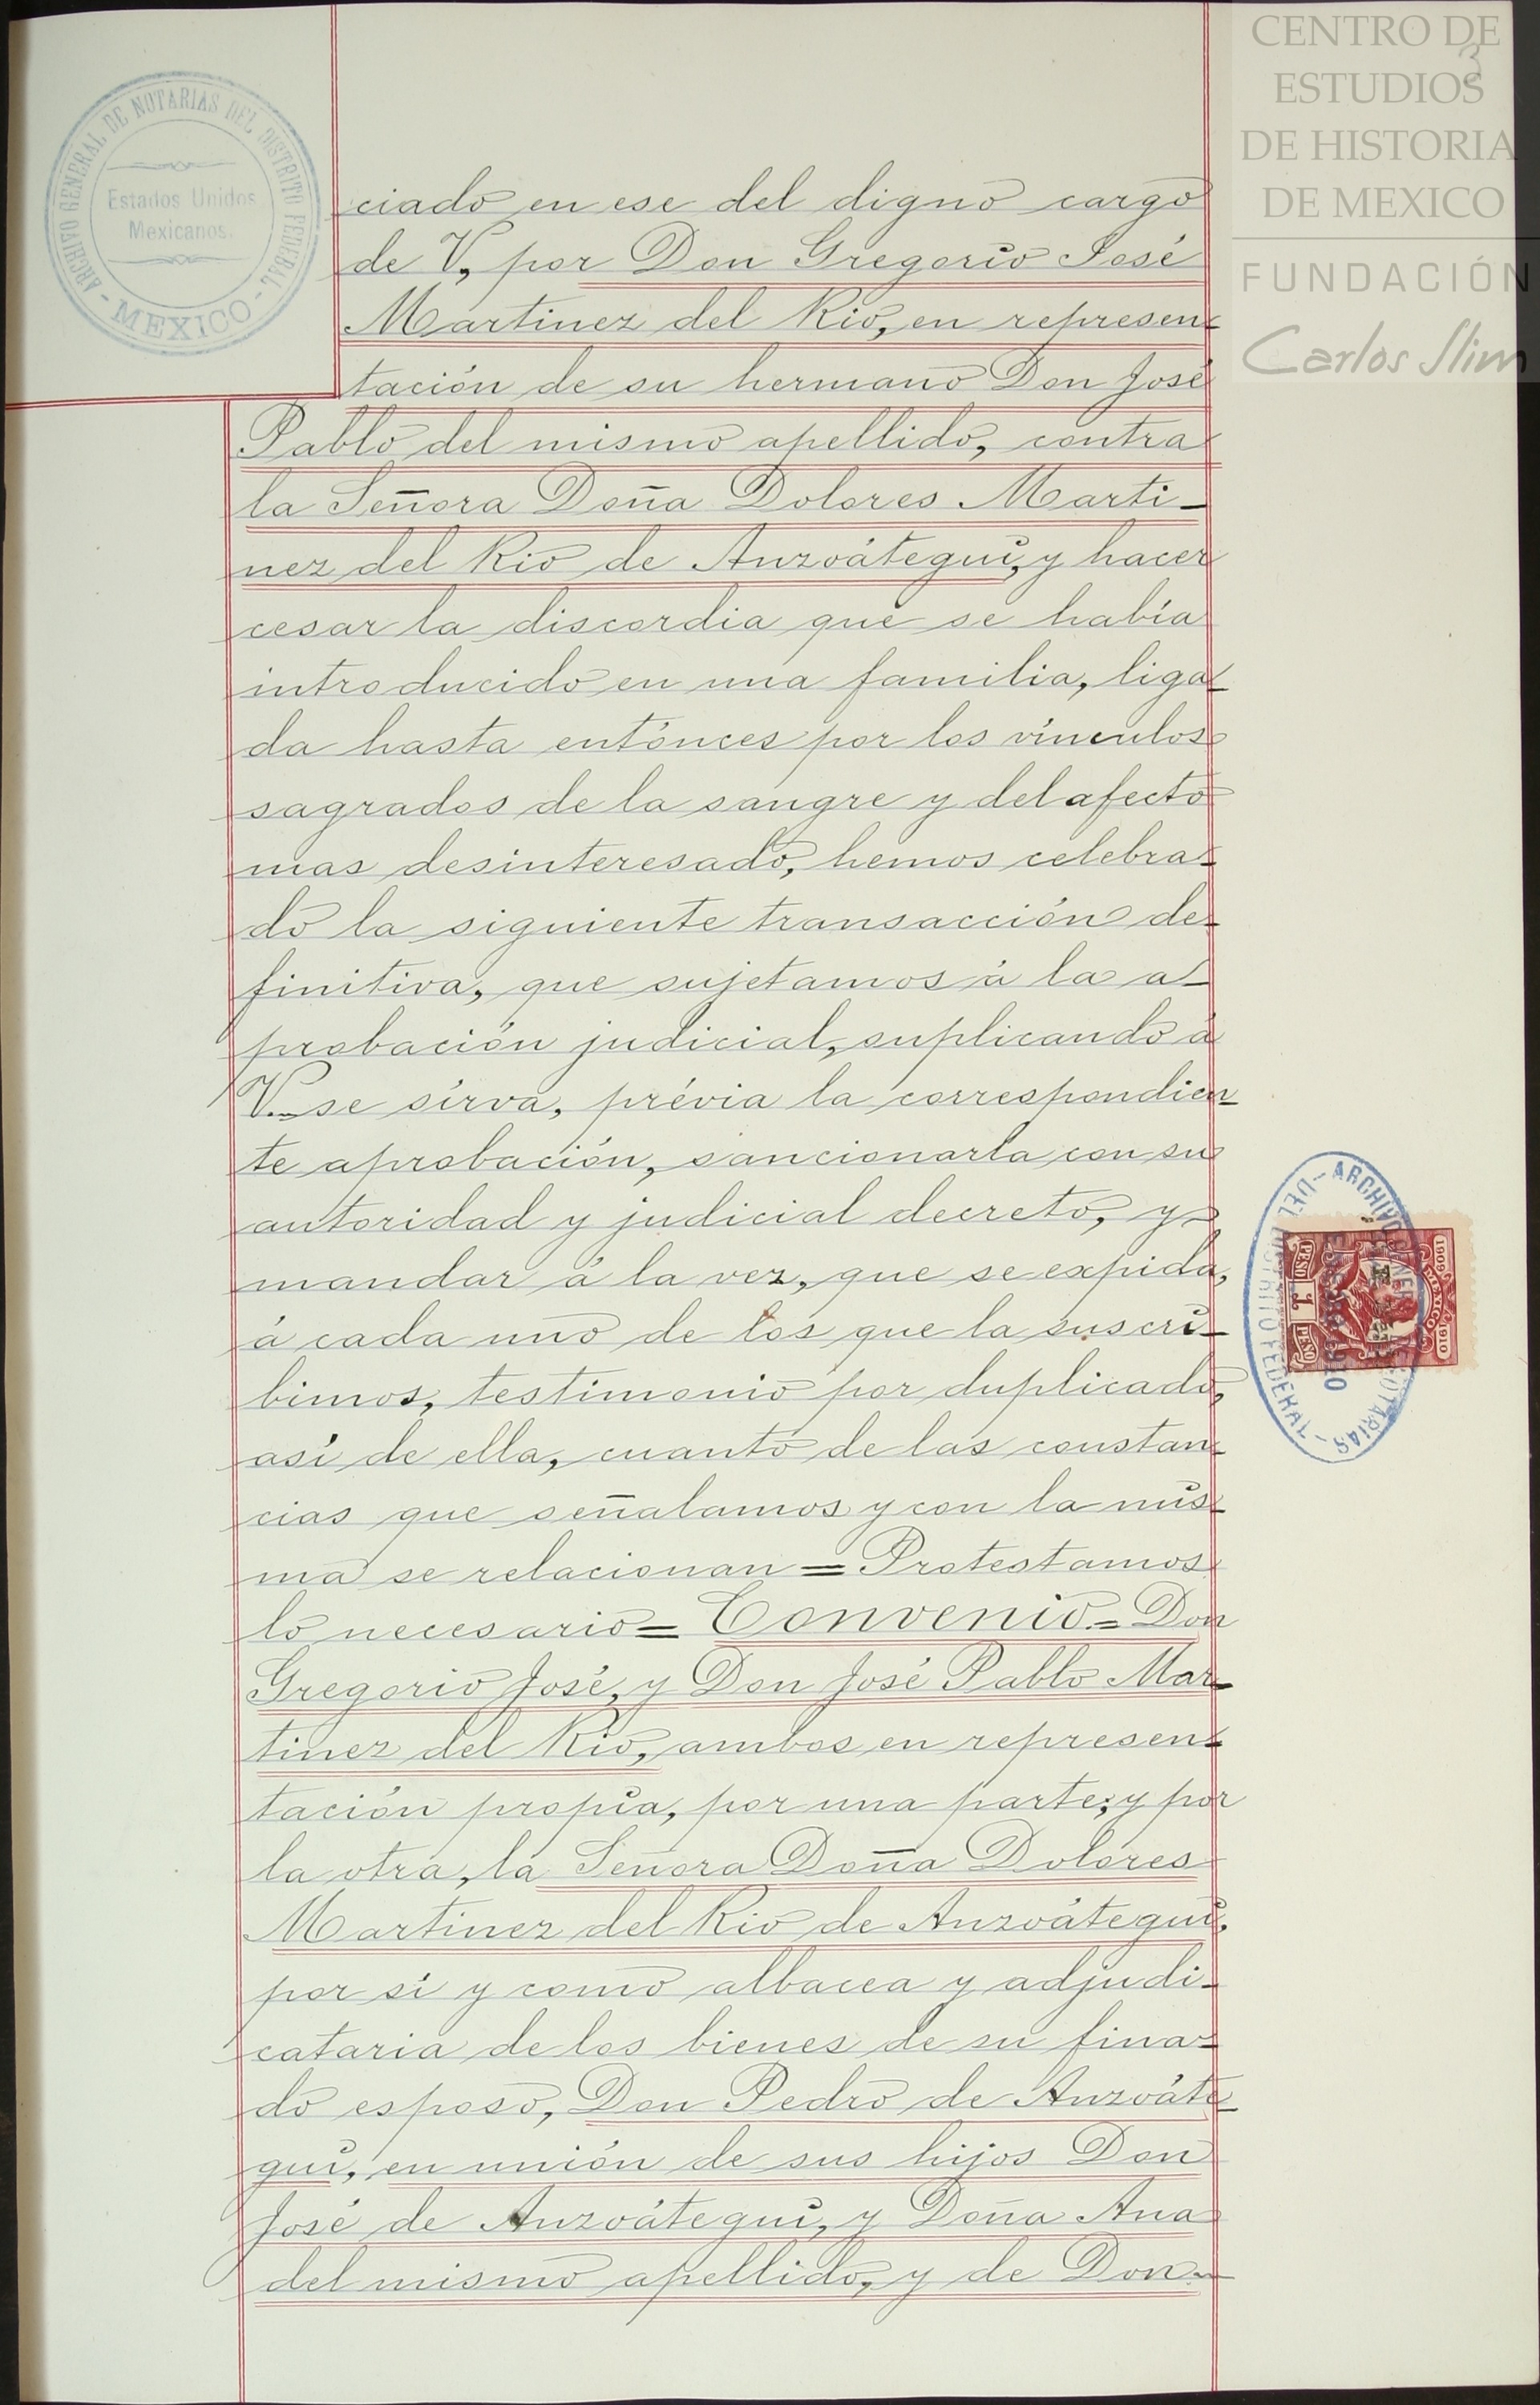 CENTRO DE
ESTUDIOS
DE HISTORIA
DE MEXICO
FUNDACIÓN
Carlos Slim
3
ARCHIVO GENERAL DE NOTARIAS DEL DISTRITO FEDERAL
- MEXICO -
Estados Unidos
Mexicanos.
ciado en ese del digno cargo
de V, por Don Gregorio José
Martinez del Rio, en represen-
tación de su hermano Don José
Pablo del mismo apellido, contra
la Señora Doña Dolores Marti-
nez del Rio de Anzoátegui, y hacer
cesar la discordia que se había
introducido en una familia, liga-
da hasta entónces por los vínculos
sagrados de la sangre y del afecto
mas desinteresado, hemos celebra-
do la siguiente transacción de-
finitiva, que sujetamos á la a-
probación judicial, suplicando á
V. se sirva, prévia la correspondien-
te aprobación, sancionarla con su
autoridad y judicial decreto, y
mandar á la vez, que se expida,
á cada uno de los que la suscri-
bimos, testimonio por duplicado,
así de ella, cuanto de las constan-
cias que señalamos y con la mis-
ma se relacionan = Protestamos
lo necesario = Convenio = Don
Gregorio José, y Don José Pablo Mar-
tinez del Rio, ambos en represen-
tación propia, por una parte; y por
la otra, la Señora Doña Dolores
Martinez del Rio de Anzoátegui,
por sí y como albacea y adjudi-
cataria de los bienes de su fina-
do esposo, Don Pedro de Anzoáte-
gui, en unión de sus hijos Don
José de Anzoátegui, y Doña Ana
del mismo apellido, y de Don
- ARCHIVO GENERAL DE NOTARIAS -
DEL DISTRITO FEDERAL
1909 MEXICO 1910
PESO 1 PESO